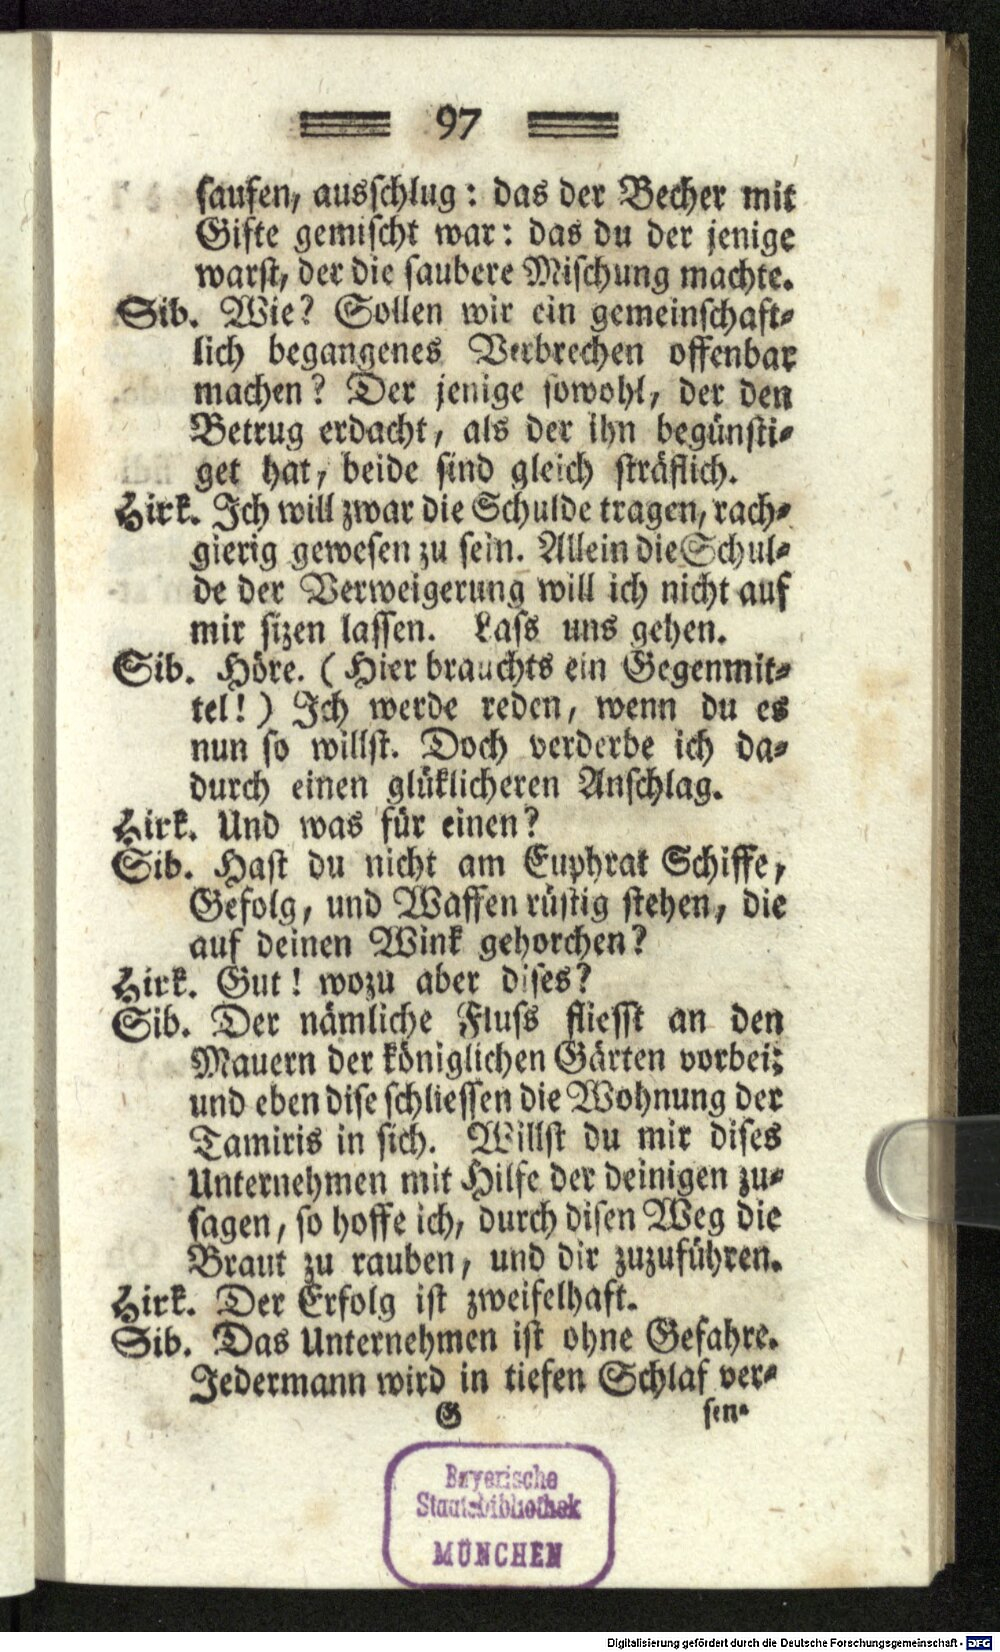 97
saufen, ausschlug: das der Becher mit
Gifte gemischt war: das du der jenige
warst, der die saubere Mischung machte.
Sib. Wie? Sollen wir ein gemeinschaft-
lich begangenes Verbrechen offenbar
machen? Der jenige sowohl, der den
Betrug erdacht, als der ihn begünsti-
get hat, beide sind gleich sträflich.
Hirk. Ich will zwar die Schulde tragen, rach-
gierig gewesen zu sein. Allein die Schul-
de der Verweigerung will ich nicht auf
mir sizen lassen. Lass uns gehen.
Sib. Höre. (Hier brauchts ein Gegenmit-
tel!) Ich werde reden, wenn du es
nun so willst. Doch verderbe ich da-
durch einen glüklicheren Anschlag.
Hirk. Und was für einen?
Sib. Hast du nicht am Euphrat Schiffe,
Gefolg, und Waffen rüstig stehen, die
auf deinen Wink gehorchen?
Hirk. Gut! wozu aber dises?
Sib. Der nämliche Fluss fliesst an den
Mauern der königlichen Gärten vorbei;
und eben dise schliessen die Wohnung der
Tamiris in sich. Willst du mir dises
Unternehmen mit Hilfe der deinigen zu-
sagen, so hoffe ich, durch disen Weg die
Braut zu rauben, und dir zuzuführen.
Hirk. Der Erfolg ist zweifelhaft.
Sib. Das Unternehmen ist ohne Gefahre.
Jedermann wird in tiefen Schlaf ver-
G sen-
Bayerische
Staatsbibliothek
MÜNCHEN
Digitalisierung gefördert durch die Deutsche Forschungsgemeinschaft - DFG